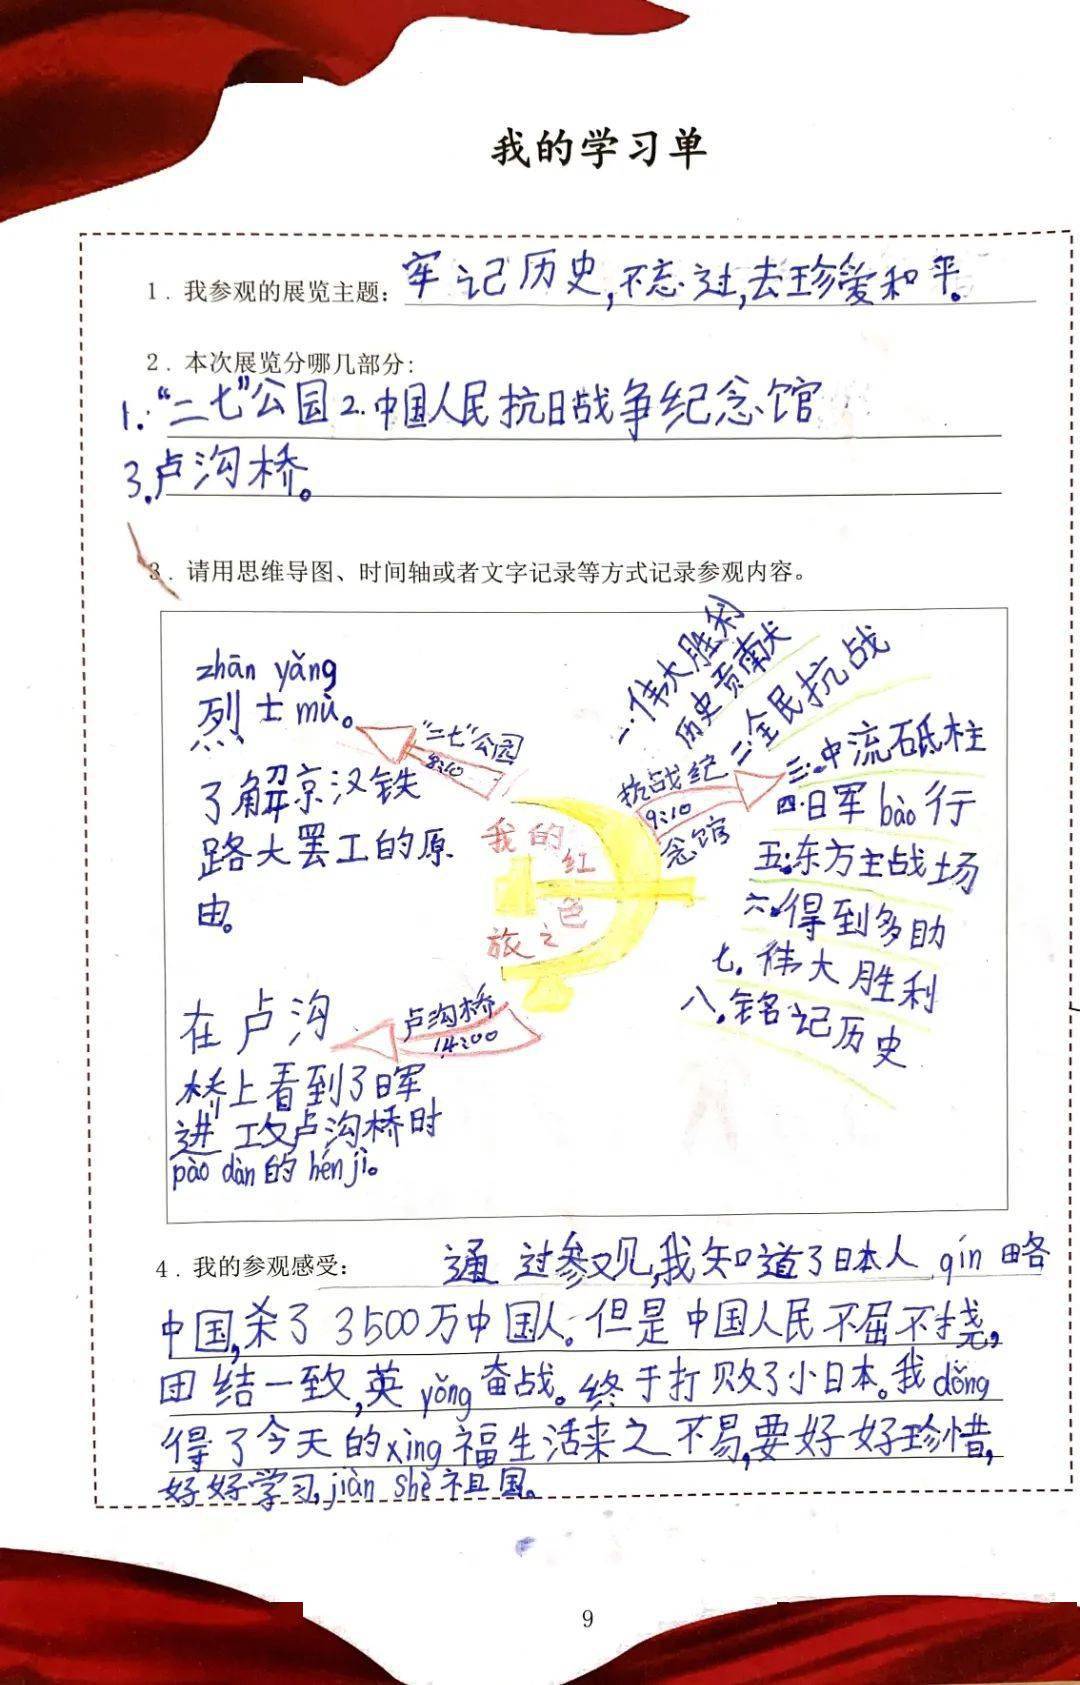 我的学习单
1. 我参观的展览主题: 牢记历史,不忘过,去珍爱和平。
2. 本次展览分哪几部分:
1.“二七”公园2.中国人民抗日战争纪念馆
3.卢沟桥。
3. 请用思维导图、时间轴或者文字记录等方式记录参观内容。
zhān yǎng
烈士mù。
“二七”公园
8:10
了解京汉铁
路大罢工的原
由。
我的
红
色
之
旅
抗战纪
9:10
念馆
一.伟大胜利
历史贡献
二.全民抗战
三.中流砥柱
四.日军bào行
五.东方主战场
六.得到多助
七.伟大胜利
八.铭记历史
卢沟桥
14:00
在卢沟
桥上看到了日军
进攻卢沟桥时
pào dàn的hén jì。
4. 我的参观感受: 通过参观,我知道了日本人qín略
中国,杀了3500万中国人。但是中国人民不屈不挠,
团结一致,英yǒng奋战。终于打败了小日本。我dǒng
得了今天的xìng福生活来之不易,要好好珍惜,
好好学习,jiàn shè祖国。
9